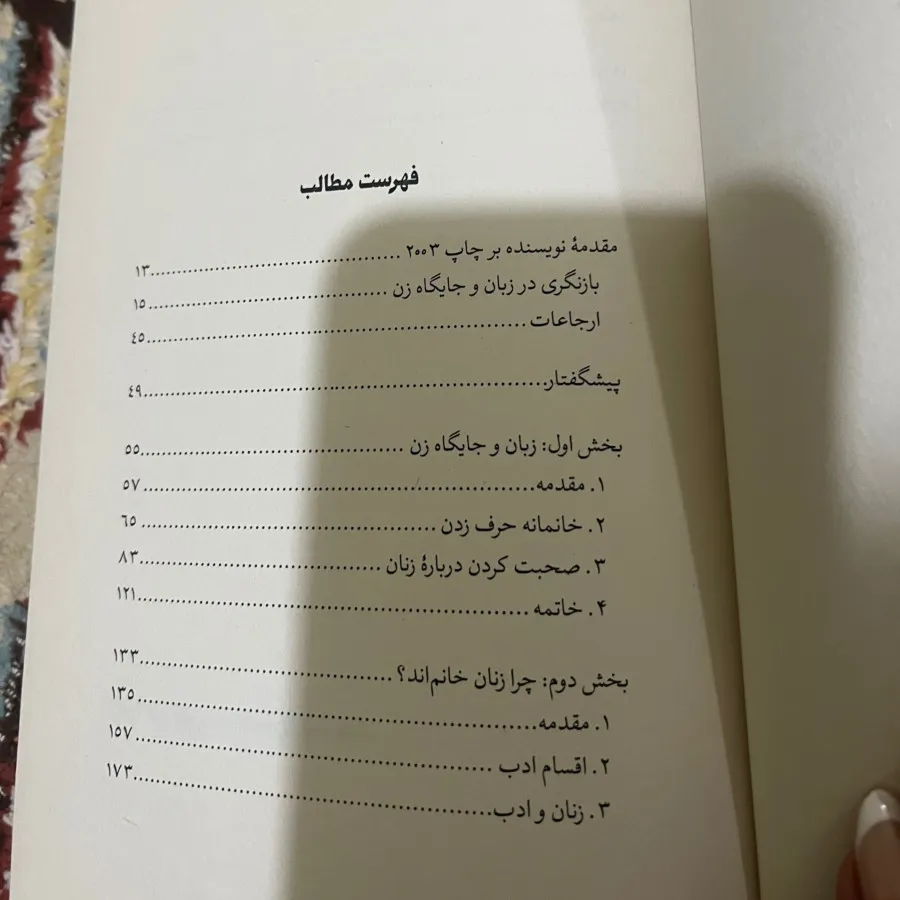 فهرست مطالب
مقدمهٔ نویسنده بر چاپ ۲۰۰۳ ........ ۱۳
بازنگری در زبان و جایگاه زن ........ ۱۵
ارجاعات ........ ۴۵
پیشگفتار ........ ۴۹
بخش اول: زبان و جایگاه زن ........ ۵۵
۱. مقدمه ........ ۵۷
۲. خانمانه حرف زدن ........ ۶۵
۳. صحبت کردن دربارهٔ زنان ........ ۸۳
۴. خاتمه ........ ۱۲۱
بخش دوم: چرا زنان خانم‌اند؟ ........ ۱۳۳
۱. مقدمه ........ ۱۳۵
۲. اقسام ادب ........ ۱۵۷
۳. زنان و ادب ........ ۱۷۳